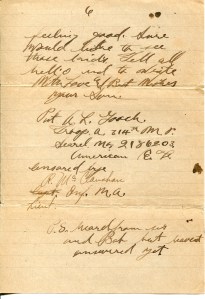 6
feeling good. Sure
would like to see
those kids. Tell all
hello and to write
With Love & Best Wishes
your Son
Pvt A. L.
Troop A 214th M. P.
Serial No
American E. F.
Censored by
R.
Inf. N.A.
Lieut.
P.S. Heard from
and Bob but havent
answered yet